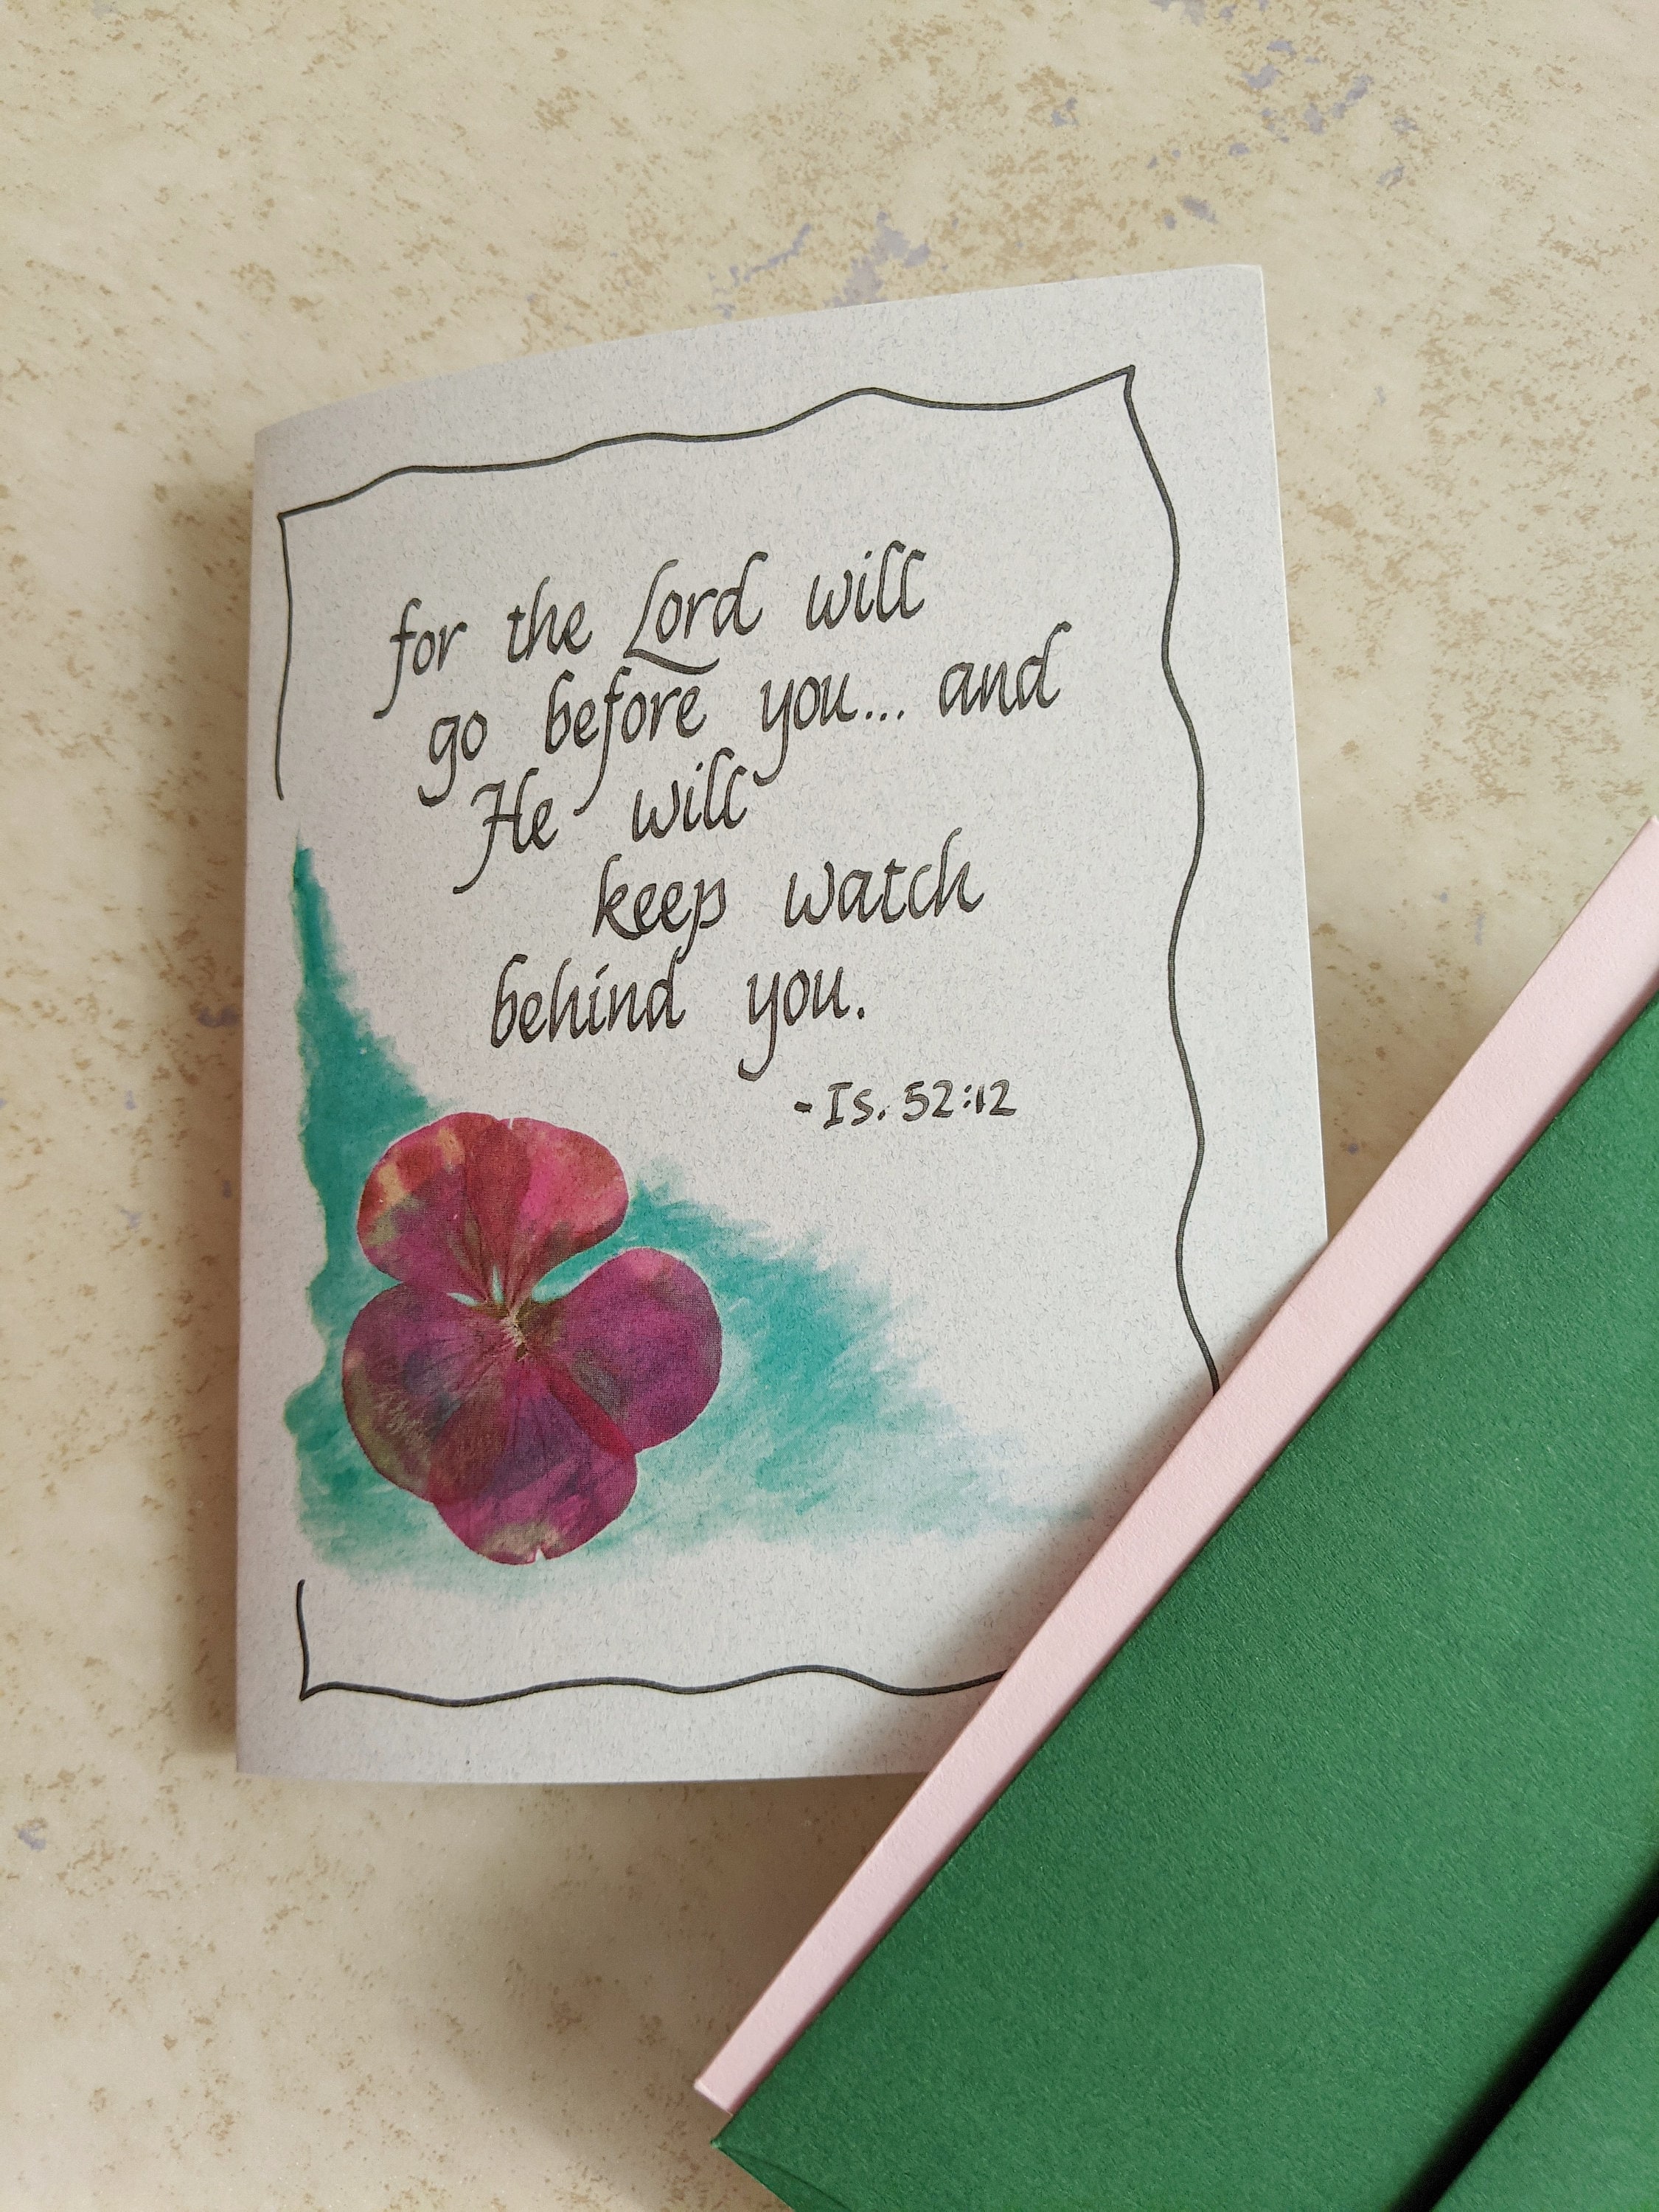 for the Lord will
go before you... and
He will
keep watch
behind you.
-Is. 52:12